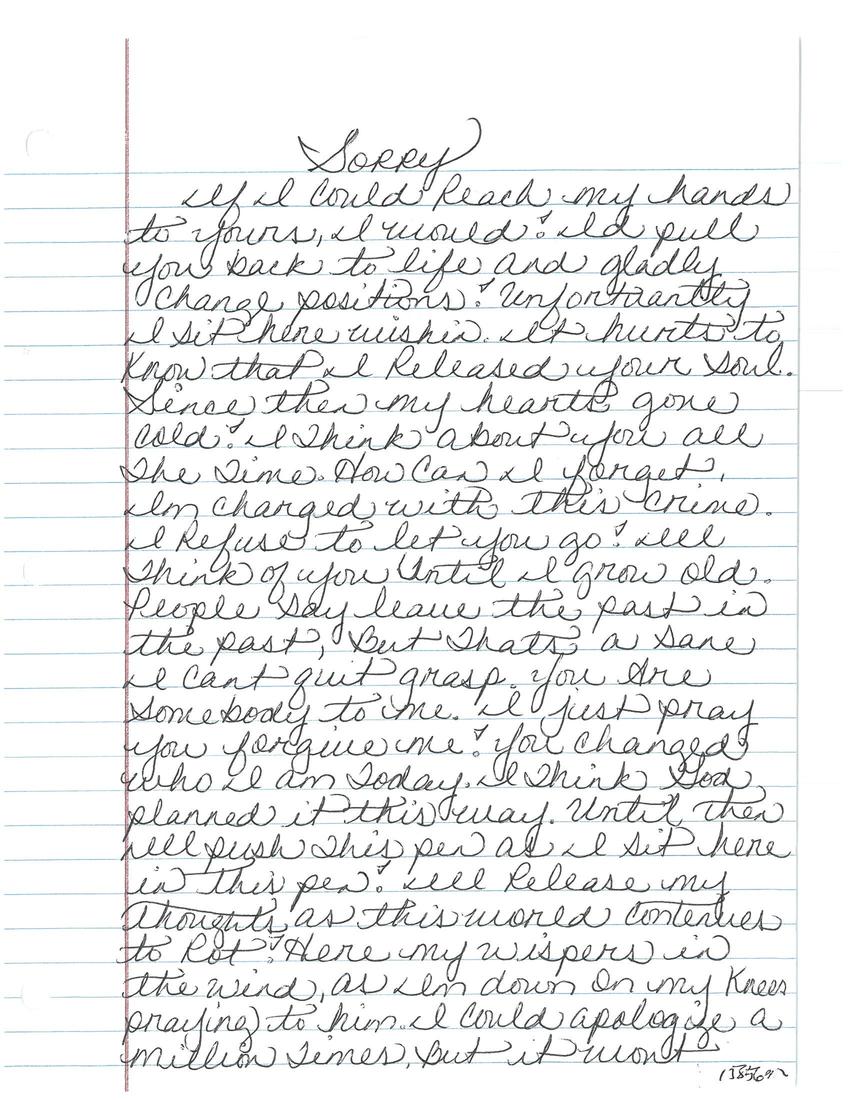 Sorry
If I Could Reach my hands
to yours, I would! Id pull
you back to life and gladly
Change positions! Unfortuantly
I sit here wishin. It hurts to
Know that I Released your Soul.
Since then my hearts gone
Cold! I Think about you all
The Time. How Can I forget,
Im charged with this crime.
I Refuse to let you go! Ill
Think of you Until I grow old.
People Say leave the past in
the past, But Thats a Sane
I Cant quit grasp. You Are
Somebody to me. I just pray
you forgive me! You changed
who I am Today. I Think God
planned it this way. Until then
Ill push This pen as I sit here
in this pen! Ill Release my
Thoughts as this world contenues
to Rot! Here my wispers in
the wind, as Im down On my Knees
praying to him. I Could apologize a
million Times, But it wont